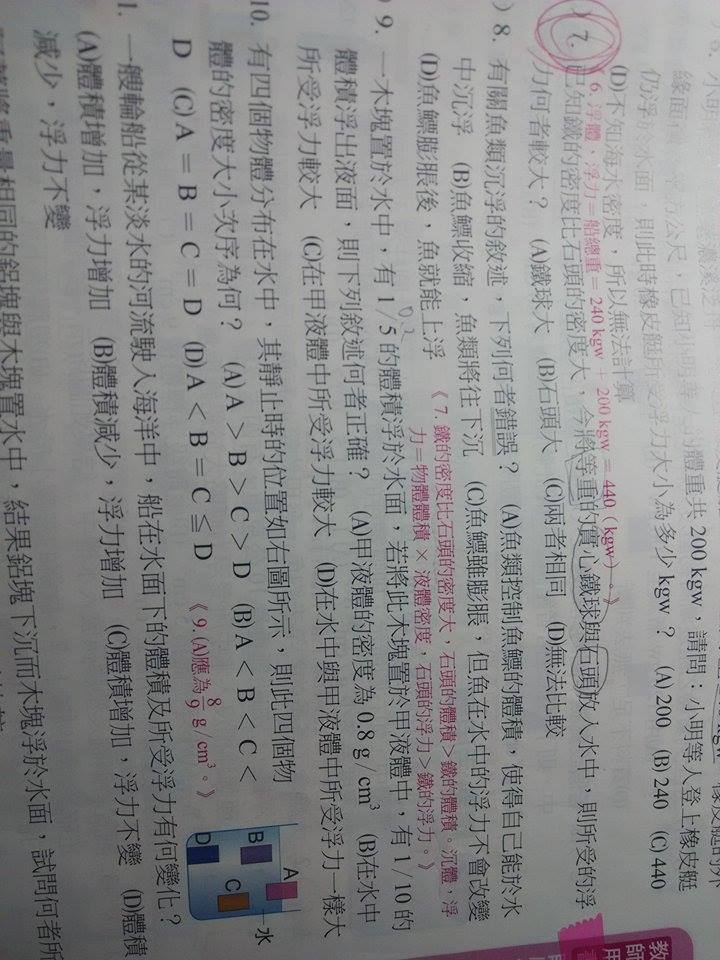 緣面
體重共 200 kgw，請問：小明等人登上橡皮艇
仍浮於水面，則此時橡皮艇所受浮力大小為多少 kgw？ (A) 200 (B) 240 (C) 440
(D)不知海水密度，所以無法計算
《 6. 浮體，浮力＝船總重＝240 kgw＋200 kgw＝440（kgw）。》
7. 已知鐵的密度比石頭的密度大，今將等重的實心鐵球與石頭放入水中，則所受的浮
力何者較大？ (A)鐵球大 (B)石頭大 (C)兩者相同 (D)無法比較
《 7. 鐵的密度比石頭的密度大，石頭的體積＞鐵的體積。沉體，浮
力＝物體體積 × 液體密度，石頭的浮力＞鐵的浮力。》
) 8. 有關魚類沉浮的敘述，下列何者錯誤？ (A)魚類控制魚鰾的體積，使得自己能於水
中沉浮 (B)魚鰾收縮，魚類將往下沉 (C)魚鰾雖膨脹，但魚在水中的浮力不會改變
(D)魚鰾膨脹後，魚就能上浮
) 9. 一木塊置於水中，有 1／5 的體積浮於水面，若將此木塊置於甲液體中，有 1／10 的
體積浮出液面，則下列敘述何者正確？ (A)甲液體的密度為 0.8 g／cm³ (B)在水中
所受浮力較大 (C)在甲液體中所受浮力較大 (D)在水中與甲液體中所受浮力一樣大
《 9. (A)應為 8/9 g／cm³。》
10. 有四個物體分布在水中，其靜止時的位置如右圖所示，則此四個物
體的密度大小次序為何？ (A) A＞B＞C＞D (B) A＜B＜C＜
D (C) A＝B＝C＝D (D) A＜B＝C≦D
A
B
C
D
水
1. 一艘輪船從某淡水的河流駛入海洋中，船在水面下的體積及所受浮力有何變化？
(A)體積增加，浮力增加 (B)體積減少，浮力增加 (C)體積增加，浮力不變 (D)體積
減少，浮力不變
重量相同的鋁塊與木塊置水中，結果鋁塊下沉而木塊浮於水面，試問何者所
教
師
用